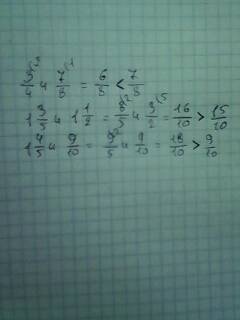 3/4 и 7/8 = 6/8 < 7/8
1 3/5 и 1 1/2 = 8/5 и 3/2 = 16/10 > 15/10
1 4/5 и 9/10 = 9/5 и 9/10 = 18/10 > 9/10